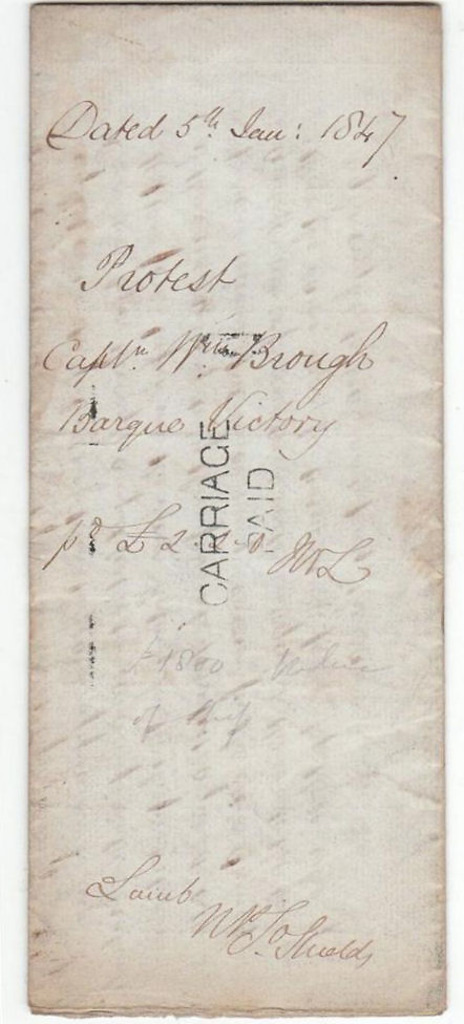 Dated 5th Jan: 1847
Protest
Captn. Wm. Brough
Barque Victory
CARRIAGE
PAID
pd £ 2
£1800 Value
of Ship
Lamb
Shields